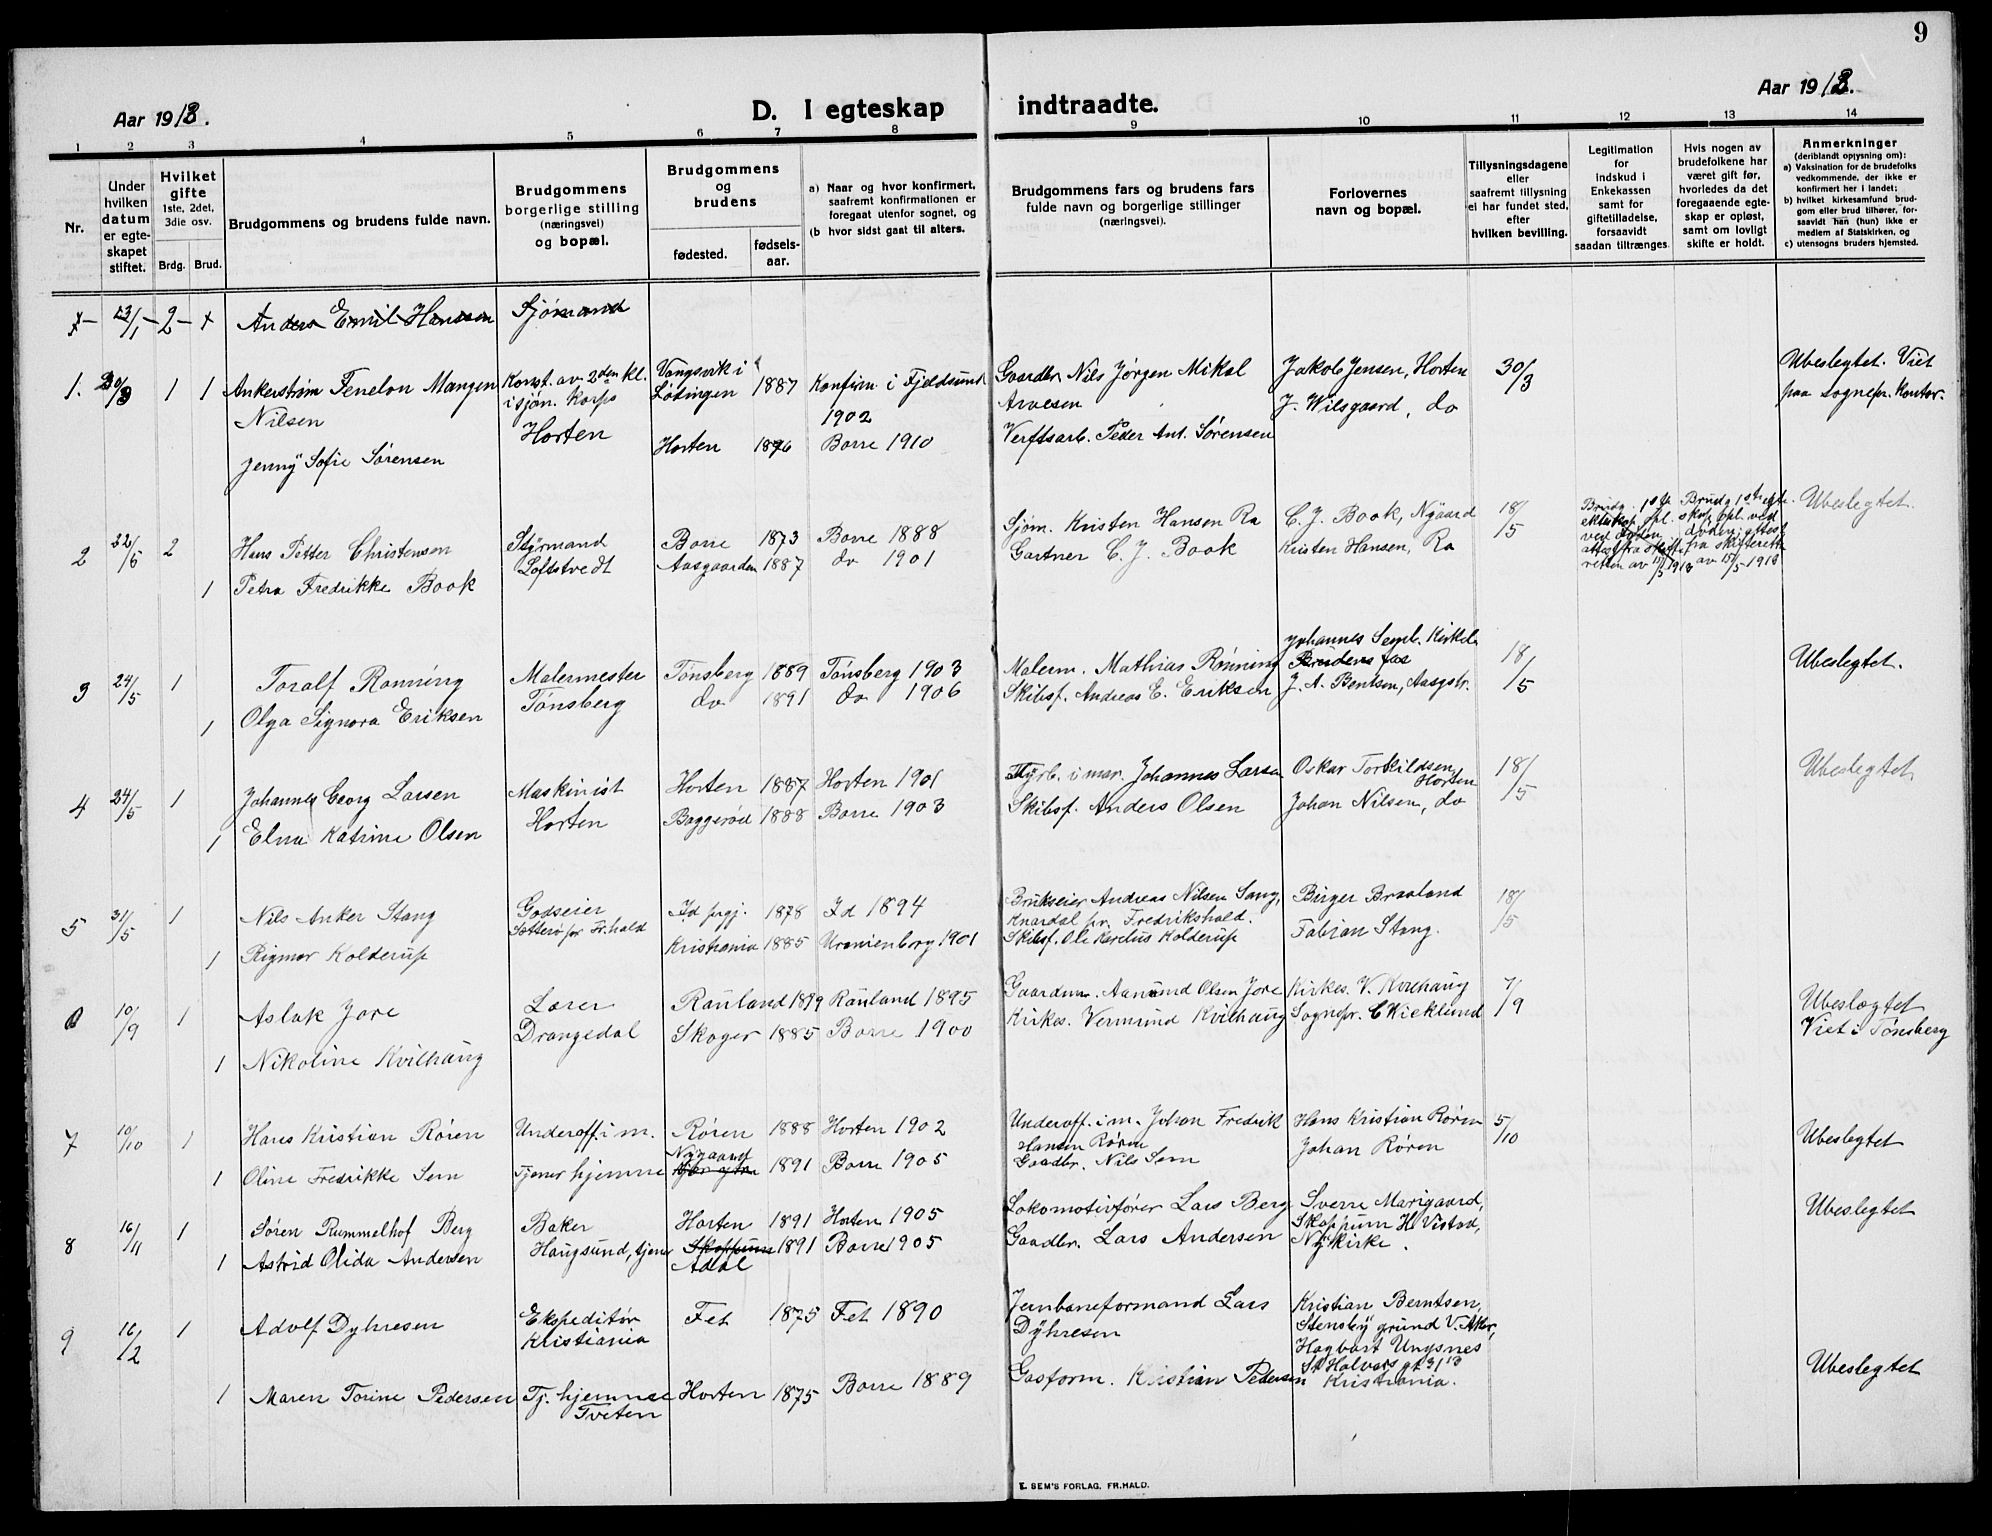 9
Aar 1913.
D. I egteskap indtraadte.
Aar 1913.
1 2 3 4 5 6 7 8 9 10 11 12 13 14
Nr.
Under hvilken datum er egteskapet stiftet.
Hvilket gifte
1ste, 2det, 3die osv.
Brdg. Brud.
Brudgommens og brudens fulde navn.
Brudgommens borgerlige stilling (næringsvei) og bopæl.
Brudgommens og brudens
fødested.
fødsels-aar.
a) Naar og hvor konfirmert, saafremt konfirmationen er foregaat utenfor sognet, og
(b hvor sidst gaat til alters.
Brudgommens fars og brudens fars fulde navn og borgerlige stillinger (næringsvei).
Forlovernes navn og bopæl.
Tillysningsdagene eller saafremt tillysning ei har fundet sted, efter hvilken bevilling.
Legitimation for indskud i Enkekassen samt for giftetilladelse, forsaavidt saadan tiltrænges.
Hvis nogen av brudefolkene har været gift før, hvorledes da det foregaaende egteskap er opløst, samt om lovligt skifte er holdt.
Anmerkninger
(deriblandt oplysning om):
a) Vaksination for de brudefolks vedkommende, der ikke er konfirmert her i landet;
b) hvilket kirkesamfund brudgom eller brud tilhører, forsaavidt han (hun) ikke er medlem af Statskirken, og
c) utensogns bruders hjemsted.
23/1 2 Anders Emil Hansen Sjømand
1. 30/3 1 1 Ankerstrøm Fenelon Mangen Nilsen Konst. av 2den kl. i sjøm. Korps Horten Vangsvik i Lødingen 1887 Konfirm. i Fjeldsund 1902 Gaardbr. Nils Jørgen Mikal Arvesen Jakob Jensen, Horten 30/3 Ubeslegtet. Viet paa sognepr. Kontor.
Jenny Sofie Sørensen Horten 1896 Borre 1910 Verftsarb. Peder Ant. Sørensen J. Wilsgaard, do
2 22/5 2 Hans Petter Christensen Styrmand Loftstvedt Borre 1873 Borre 1888 Sjøm. Kristen Hansen Ra C. J. Book, Nygaard 18/5 Ubeslegtet.
1 Petra Fredrikke Book Aasgaarden 1887 do 1901 Gartner C. J. Book Kristen Hansen, Ra
3 24/5 1 Toralf Rønning Malermester Tønsberg Tønsberg 1889 Tønsberg 1903 Malerm. Mathias Rønning Johannes Semb. Kirkeb. 18/5 Ubeslegtet.
Brudens far
1 Olga Signora Eriksen do 1891 do 1906 Skibsf. Andreas E. Eriksen J. A. Bentsen, Aasgstr.
4 24/5 1 Johannes Georg Larsen Maskinist Horten Horten 1887 Horten 1901 Styrb. i mar. Johannes Larsen Oskar Torkildsen, Horten 18/5 Ubeslegtet
1 Elna Katrine Olsen Baggerød 1888 Borre 1903 Skibsf. Anders Olsen Johan Nilsen, do
5 31/5 1 Nils Anker Stang Godseier Id prgj. 1878 Id 1894 Brukseier Andreas Nilsen Stang, Knardal pr. Fredrikshald. Birger Braaland 18/5
1 Rigmor Kolderup Kristiania 1885 Uranienborg 1901 Skibsf. Ole Karelius Kolderup Fabian Stang.
6 10/9 1 Aslak Jore Lærer Drangedal Rauland 1879 Rauland 1895 Gaardm. Aanund Olsen Jore Kirkes. V. Kvilhaug 7/9 Ubeslægtet Viet i Tønsberg
1 Nikoline Kvilhaug Skoger 1885 Borre 1900 Kirkes. Vermund Kvilhaug Sognepr. C Kicklund
7 10/10 1 Hans Kristian Røren Underoff. i m. Røren 1888 Horten 1902 Underoff. i m. Johan Fredrik Hansen Røren Hans Kristian Røren 5/10 Ubeslegtet
1 Oline Fredrikke Sem Tjener hjemme Nygaard 1891 Borre 1905 Gaadbr. Nils Sem Johan Røren
8 16/11 1 Søren Rummelhof Berg Baker Haugsund, tjener Horten 1891 Horten 1905 Lokomotivfører Lars Berg Sverre Marigaard, Skoppum H. Vistad, Nykirke. Ubeslegtet
1 Astrid Olida Andersen Skoppum Adal 1891 Borre 1905 Gaadbr. Lars Andersen
9 16/12 1 Adolf Dyhresen Ekspeditør Kristiania Fet 1875 Fet 1890 Jernbaneformand Lars Dyhresen Kristian Berntsen, Stensby grund V. Aker,
Hagbart Ungsnes St Halvars gt 31 Kristiania.
1 Maren Torine Pedersen Tj. hjemme Tveten Horten 1875 Borre 1889 Gasform. Kristian Pedersen Ubeslegtet
E. SEM'S FORLAG, FR.HALD.